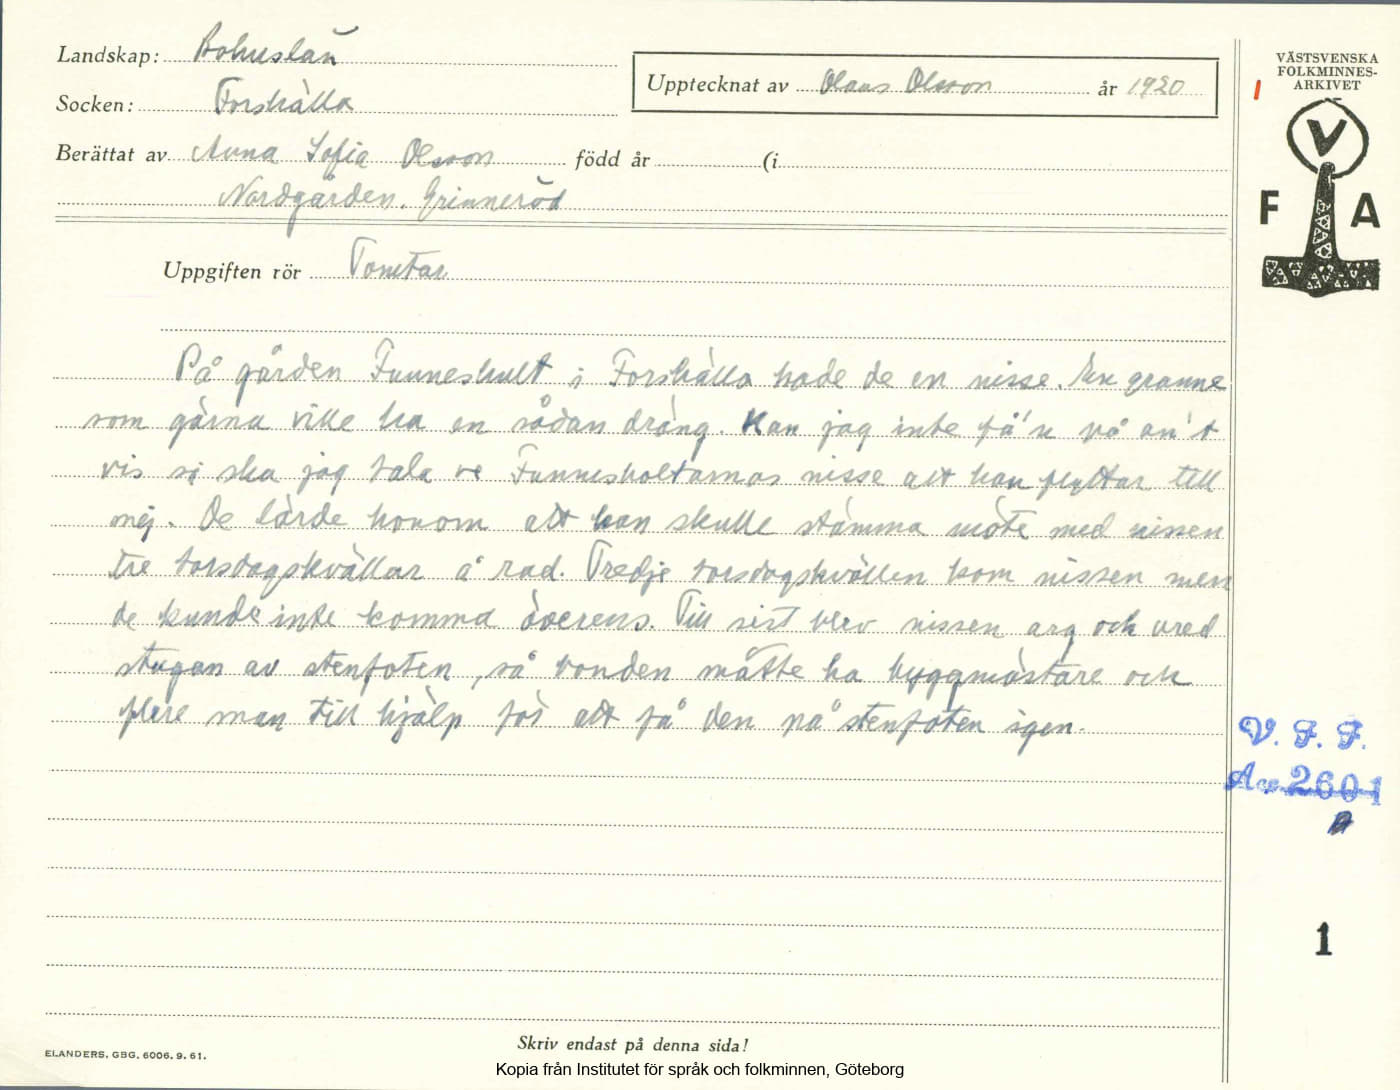 Landskap: Bohuslän
Socken: Forshälla
Upptecknat av Olaus Olsson år 1920
Berättat av Anna Sofia Olsson född år (i
Nordgården. Grinneröd
Uppgiften rör Tomtar
På gården Funneshult i Forshälla hade de en nisse. En granne
som gärna ville ha en sådan dräng. Kan jag inte få'n på an't
vis så ska jag tala ve Funnesholtarnas nisse att han flyttar till
mej. De lärde honom att han skulle stämma möte med nissen
tre torsdagskvällar å rad. Tredje torsdagskvällen kom nissen men
de kunde inte komma överens. Till sist blev nissen arg och vred
stugan av stenfoten, så bonden måtte ha byggmästare och
flere man till hjälp för att få den på stenfoten igen.
VÄSTSVENSKA
FOLKMINNES-
ARKIVET
V
F A
V. F. F.
Acc. 2601
1
ELANDERS, GBG. 6006. 9. 61.
Skriv endast på denna sida!
Kopia från Institutet för språk och folkminnen, Göteborg